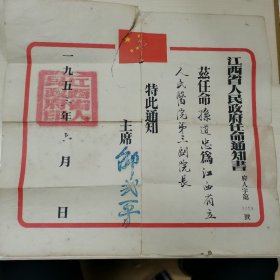 江西省人民政府任命通知書
府人字第 號
茲任命 孫道忠為江西省立
人民醫院第三副院長
特此通知
主席 邵式平
一九五 年 月 日
江西省人民政府印